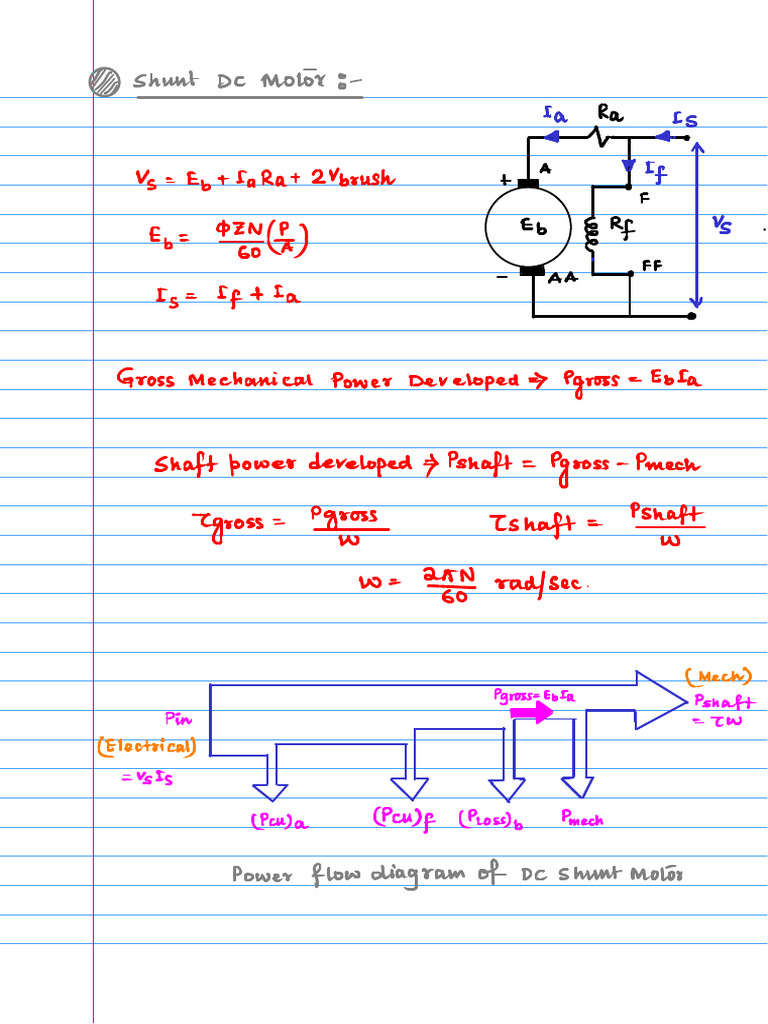 Shunt DC Motor :-
Ia Ra Is
Vs = Eb + Ia Ra + 2Vbrush
A If
+ F
Eb = ΦZN/60 (P/A)
Eb Rf Vs
- AA FF
Is = If + Ia
Gross Mechanical Power Developed ⇒ Pgross = EbIa
Shaft power developed ⇒ Pshaft = Pgross - Pmech
τgross = Pgross/w τshaft = Pshaft/w
w = 2πN/60 rad/sec.
(Mech)
Pgross = EbIa
Pin Pshaft
= τw
(Electrical)
= VsIs
(Pcu)a (Pcu)f (Ploss)b Pmech
Power flow diagram of DC Shunt Motor